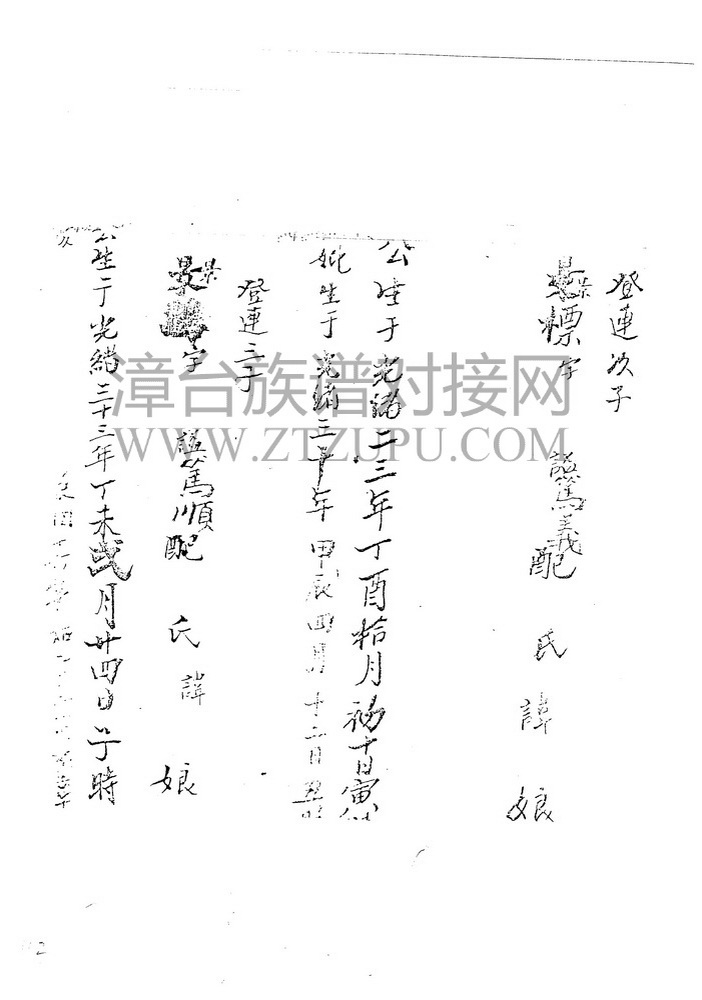 登連次子
景標字 諡篤義配 氏 諱 娘
公生于光緒二三年丁酉拾月初十日寅時
妣生于光緒三十年甲辰四月十二日丑時
登連三子
景 字 諡篤順配 氏 諱 娘
公生于光緒三十三年丁未弍月廿四日 時
漳台族谱对接网
WWW.ZTZUPU.COM